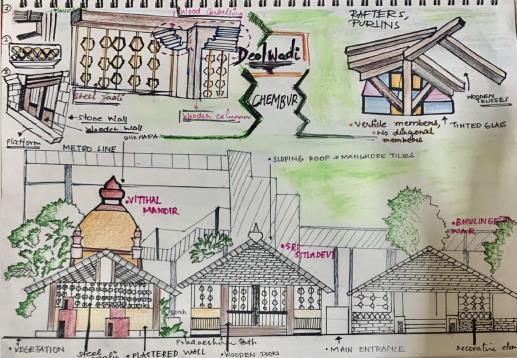 Wood Corbelling
RAFTERS,
PURLINS
Deol Wadi
Steel Jaali
CHEMBUR
Wooden column
WOODEN
TRUSSES
Stone Wall
Wooden Wall
Platform
SHIKHARA
• Verticle members,
• No diagonal
members
TINTED GLASS
METRO LINE
• SLOPING ROOF → MANGALORE TILES
• VITTHAL
MANDIR
• SRI
SITLADEVI
• BHULINGE
WAR
Pradakshina Path
• VEGETATION
steel
• PLASTERED WALL
• WOODEN DOORS
• MAIN ENTRANCE
Decorative elem